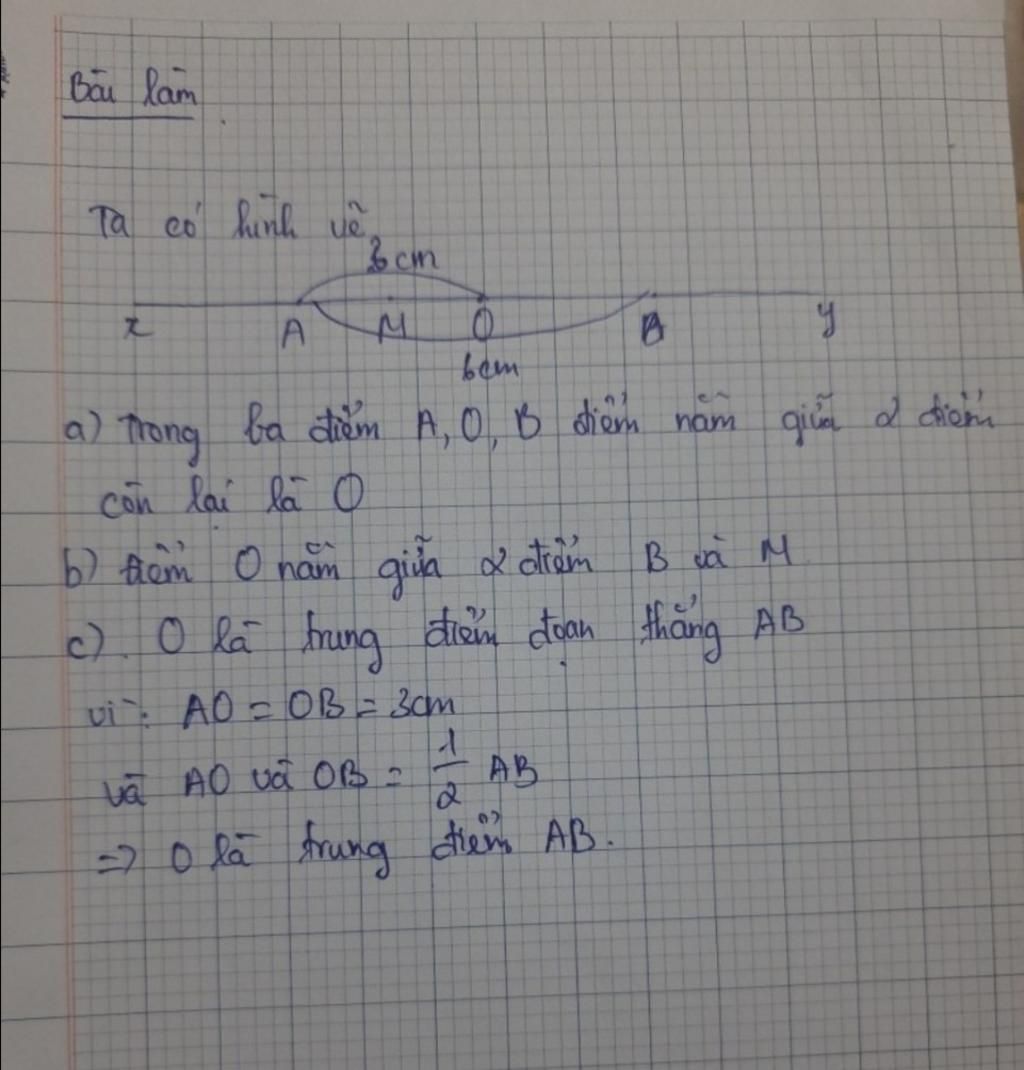 Bài làm
Ta có hình vẽ
3cm
x A M O B y
6cm
a) Trong ba điểm A, O, B điểm nằm giữa 2 điểm
còn lại là O
b) điểm O nằm giữa 2 điểm B và M
c). O là trung điểm đoạn thẳng AB
vì: AO = OB = 3cm
và AO và OB = 1/2 AB
=> O là trung điểm AB.